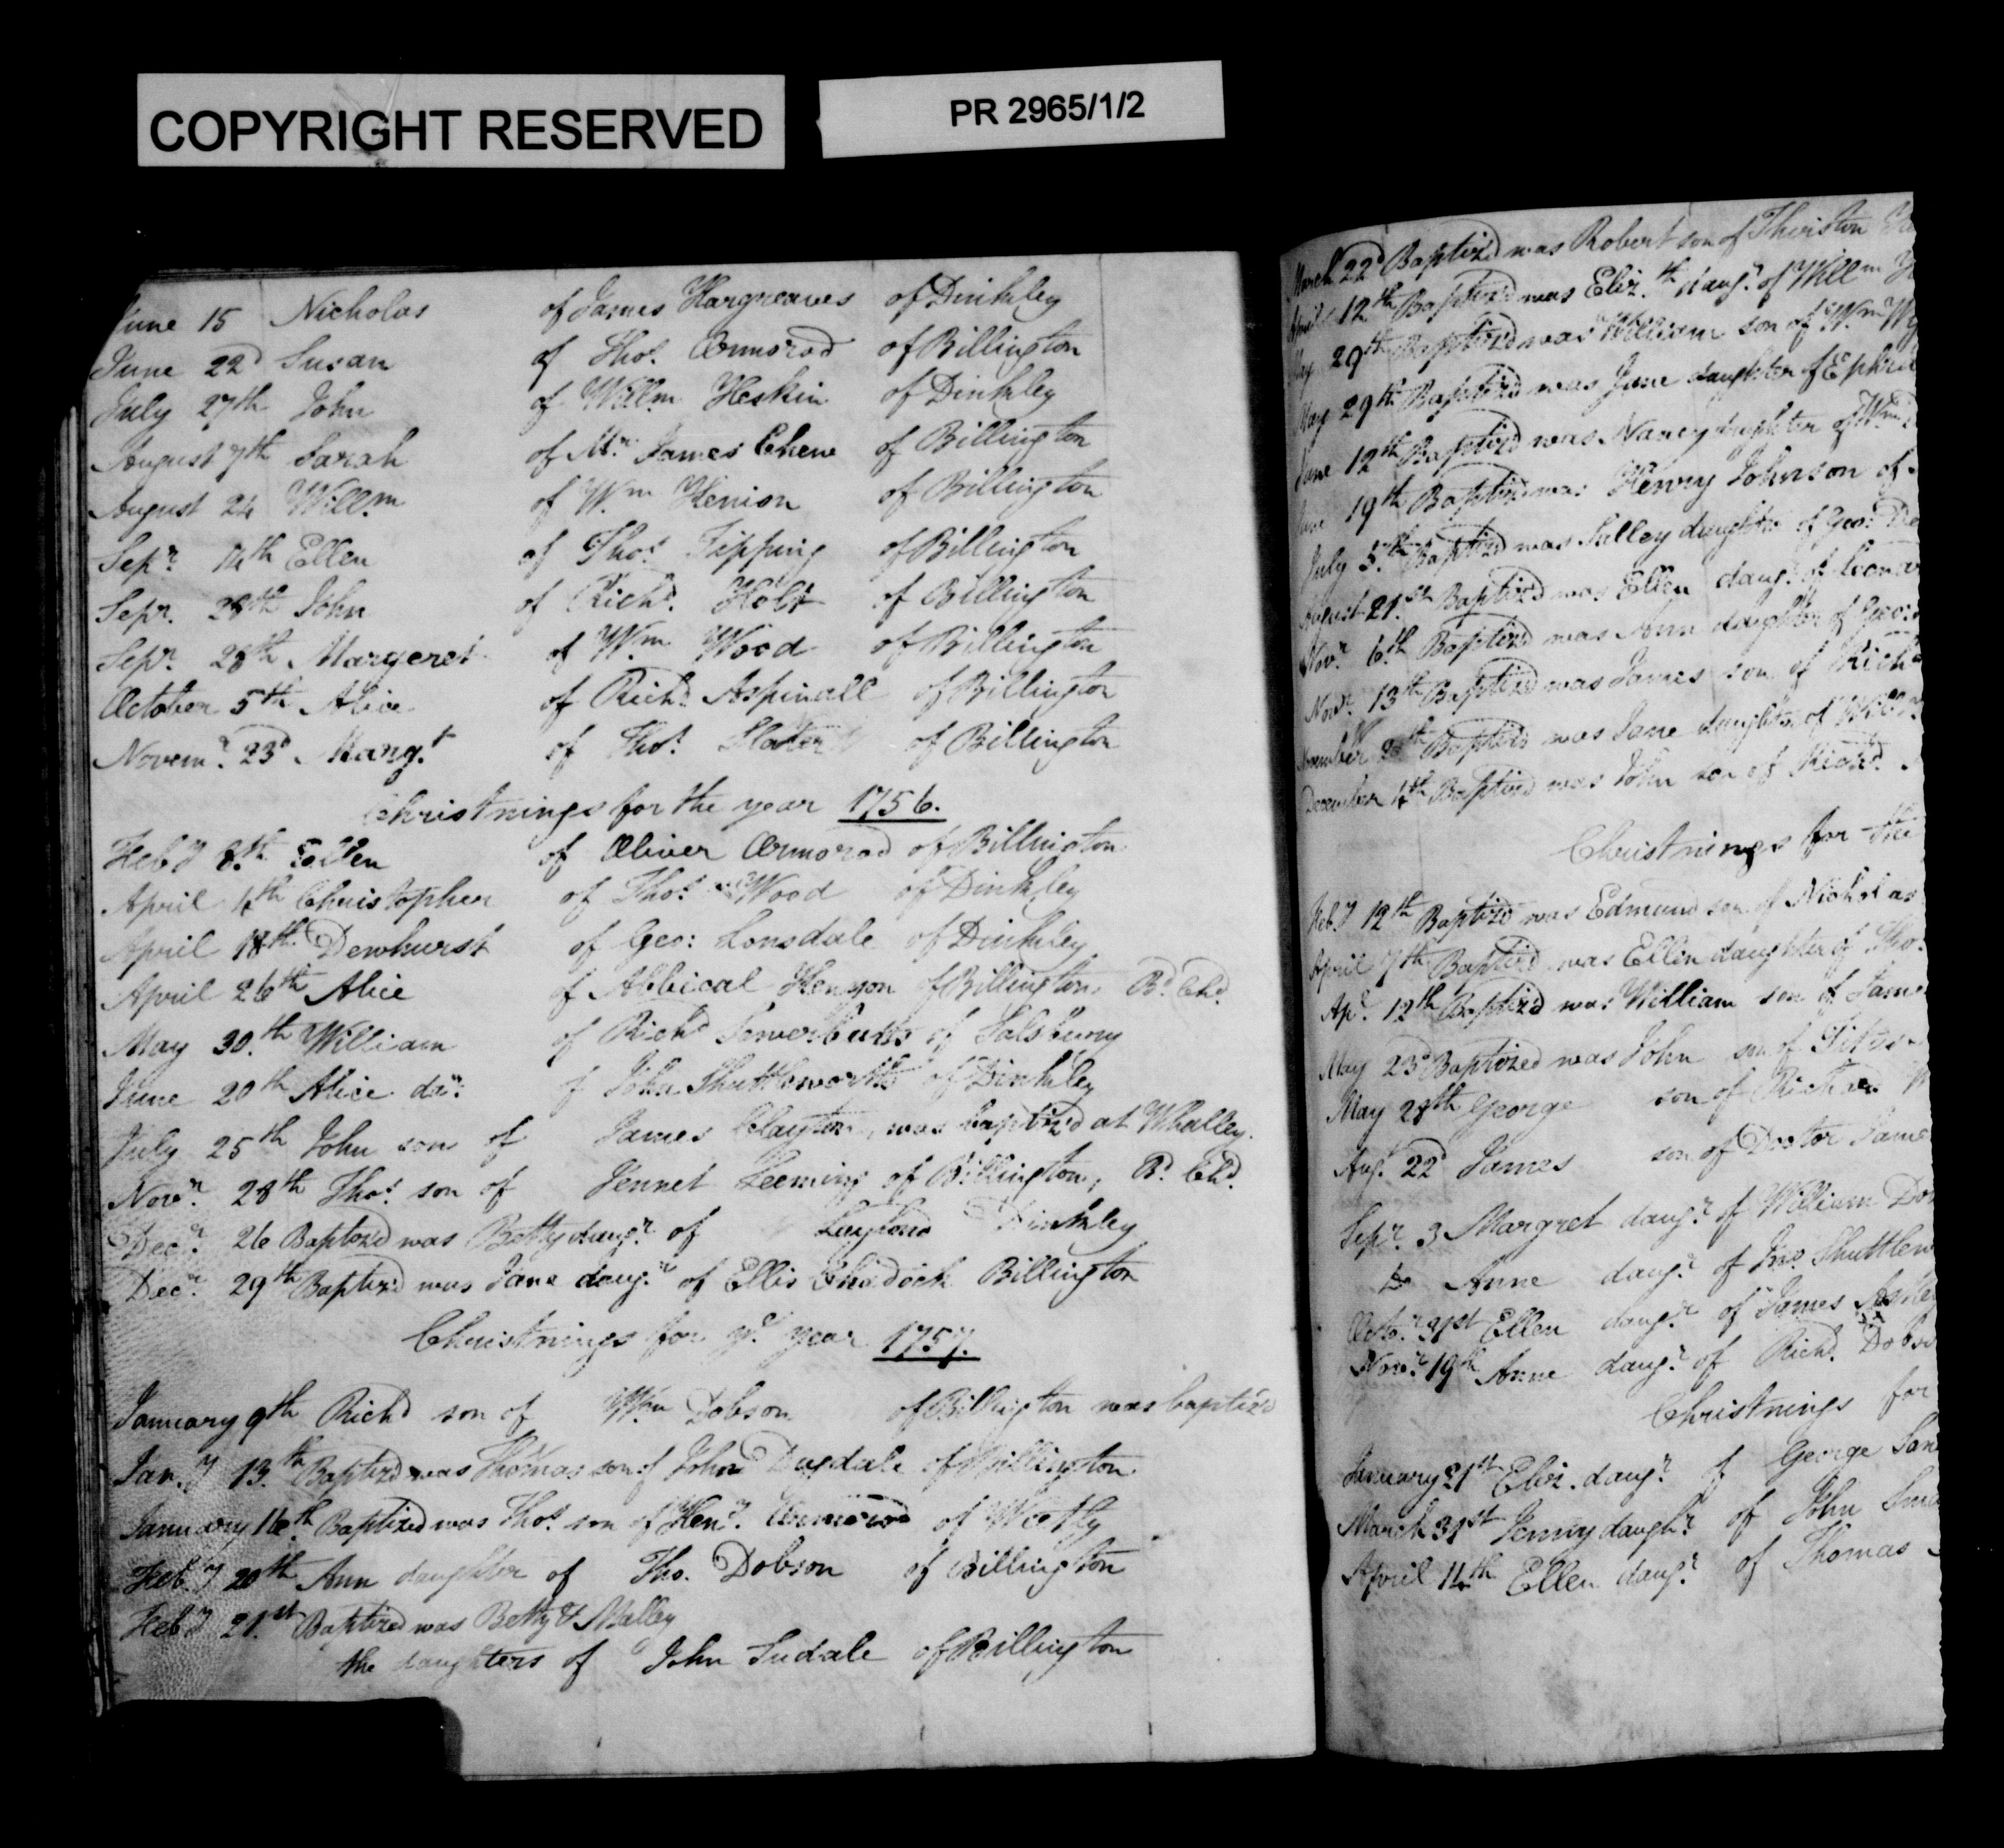 COPYRIGHT RESERVED
PR 2965/1/2
June 15 Nicholas of James Hargreaves of Dinkley
June 22d Susan of Thos. Ormorod of Billington
July 27th John of Willm Heskin of Dinkley
August 7th Sarah of Mr. James Chew of Billington
August 24 Willm of Wm Henion of Billington
Sepr. 14th Ellen of Thos. Tipping of Billington
Sepr. 28th John of Richd. Holt of Billington
Sepr. 28th Margeret of Wm Wood of Billington
October 5th Alice of Richd Aspinall of Billington
Novemr. 23d Margt of Thos. Slater of Billington
Christnings for the year 1756.
Feby 8th Ellen of Oliver Ormorod of Billington
April 4th Christopher of Thos. Wood of Dinkley
April 18th Dewhurst of Geo: Lonsdale of Dinkley
April 26th Alice of Abbical Henyon of Billington. Bd. Chd.
May 30th William of Richd Sowerbutts of Salsbury
June 20th Alice dar. of John Shuttleworth of Dinkley
July 25th John son of James Clayton, was baptiz'd at Whalley.
Novr. 28th Thos. son of Jennet Leeming of Billington, Bd. Chd.
Decr. 26 Baptiz'd was Betty daugr. of Layland Dinkley
Decr. 29th Baptiz'd was Jane daugr. of Ellis Chadock Billington
Christnings for ye year 1757.
January 9th Richd son of Wm Dobson of Billington was baptiz'd
Jany 13th Baptiz'd was Thomas son of John Dugdale of Billington
January 16th Baptized was Thos. son of Heny. Ormorod of
Feby 20th Ann daughter of Tho. Dobson of Billington
Feby 21st Baptized was Betty & Malley
the daughters of John Sudale of Billington
March 22d Baptiz'd was Robert son of Thirston
April 12th Baptiz'd was Eliz.th daugr. of Willm
May 29th Baptiz'd was William son of Wm
May 29th Baptiz'd was Jane daughter of
June 12th Baptiz'd was Nancy daughter of Wm
June 19th Baptiz'd was Henry Johnson of
July 3th Baptiz'd was Salley daughter of Geo: De
August 21st Baptiz'd was Ellen daugr. of Leonar
Novr. 6th Baptiz'd was Ann daughter of Geo:
Novr. 13th Baptiz'd was James son of Richd
November Baptiz'd was Jane daughter of Willm
December 4th Baptiz'd was John son of Richd.
Christnings for the
Feby 12th Baptiz'd was Edmund son of Nicholas
April 7th Baptiz'd was Ellen daughter of Tho.
Apr. 12th Baptiz'd was William son of Jame
May 23d Baptized was John son of
May 28th George son of Richard
Augt. 22d James son of Doctor Jame
Sepr. 3 Margret daugr. of William Do
Do Anne daugr. of Jno. Shuttlew
Octor. 31st Ellen daugr. of James
Novr. 19th Anne daugr. of Richd. Dobs
Christnings for
January 21st Eliz. daugr. of George
March 31st Jenny daughr. of John
April 14th Ellen daugr. of Thomas